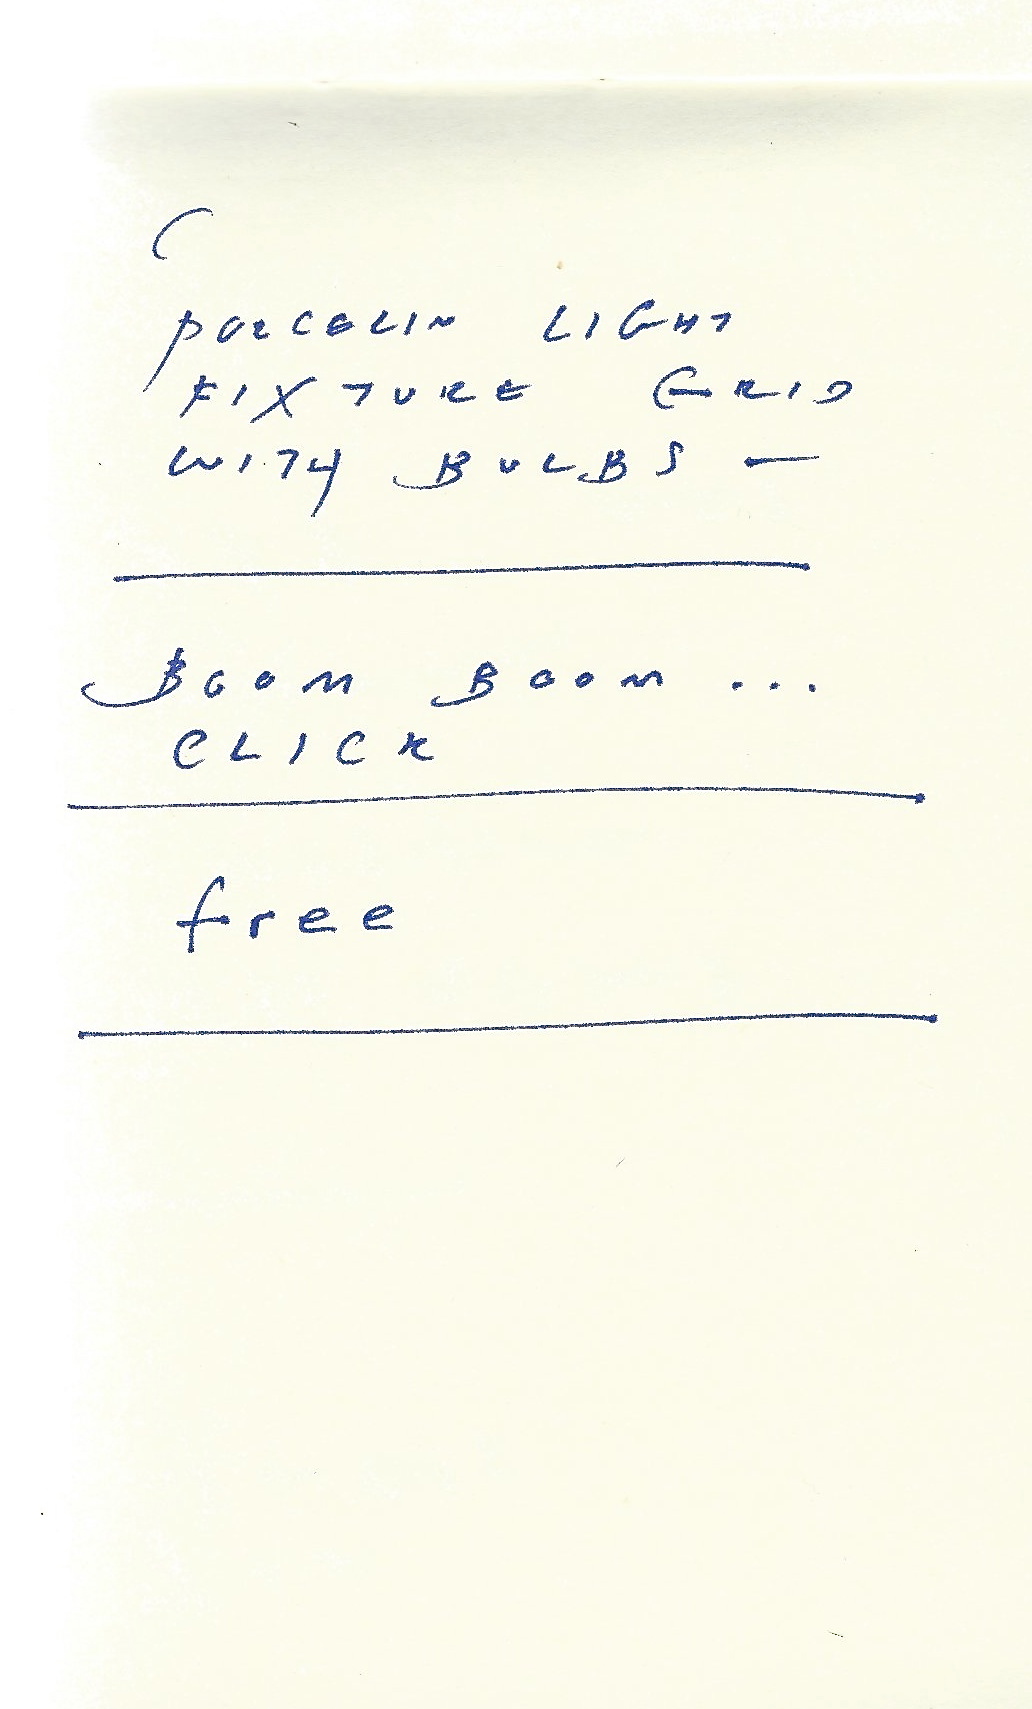 PORCELIN LIGHT
FIXTURE GRID
WITH BULBS —
BOOM BOOM ...
CLICK
free